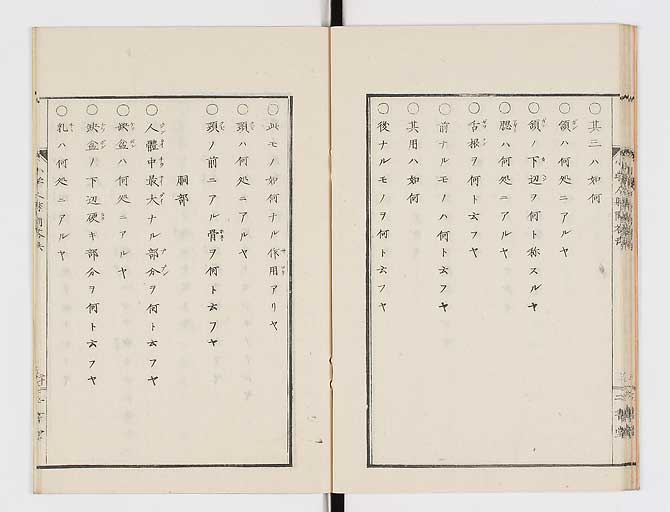 〇其三ハ如何
〇頷ハ何処ニアルヤ
〇頷ノ下辺ヲ何ト称スルヤ
〇腮ハ何処ニアルヤ
〇舌根ヲ何ト云フヤ
〇前ナルモノハ何ト云フヤ
〇其用ハ如何
〇後ナルモノヲ何ト云フヤ
〇此モノ如何ナル作用アリヤ
〇頸ハ何処ニアルヤ
〇頸ノ前ニアル骨ヲ何ト云フヤ
胴部
〇人體中最大ナル部分ヲ何ト云フヤ
〇缺盆ハ何処ニアルヤ
〇缺盆ノ下辺硬キ部分ヲ何ト云フヤ
〇乳ハ何処ニアルヤ